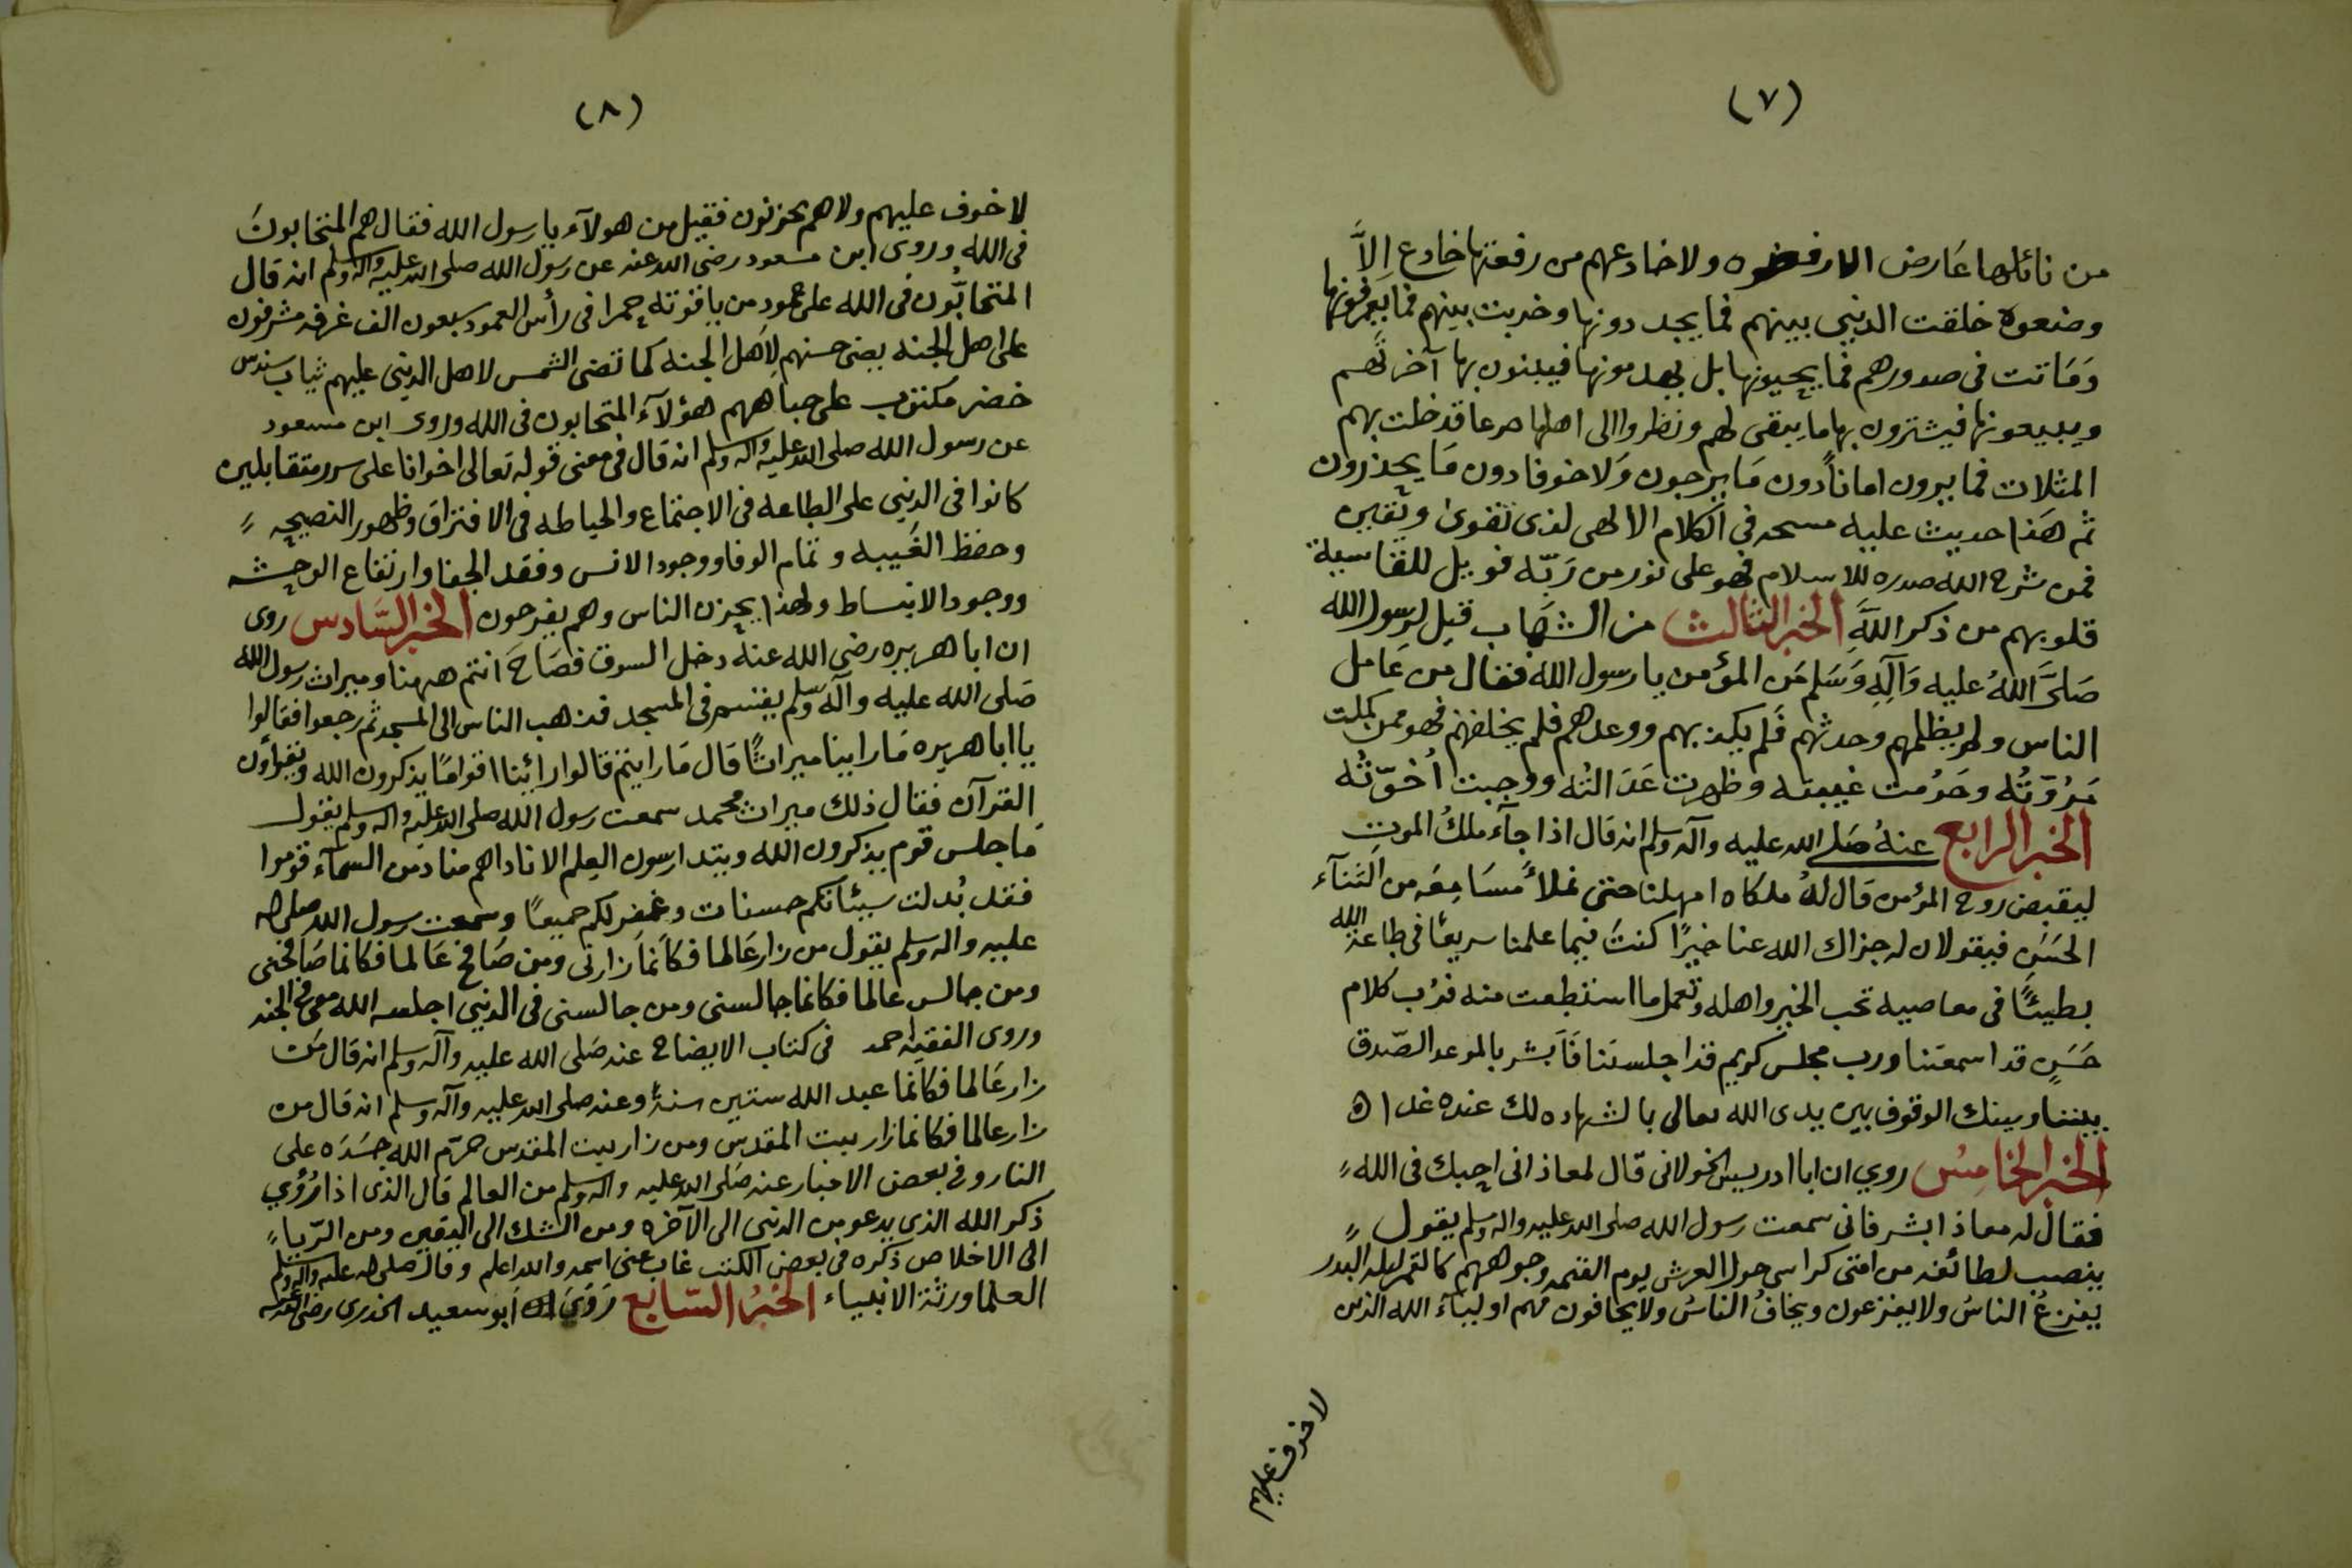 (٧)
من نائلها عَارض الا رفضوه ولا خادعهم من رفعتها خادع اِلاَّ
وضعوه خلقت الدنيى بينهم فما يجددونها وخربت بينهم فما يعمرونها
وَمَاتت في صدورهم فما يحيونها بل يهدمونها فيبنون بها آخرتهم
ويبيعونها فيشترون بها ما يبقى لهم ونظروا الى اهلها صرعا قد خلت بهم
المثلات فما يرون اماناً دون مَا يرجون وَلا خوفا دون مَا يحذرون
ثم هَذا حديث عليه مسحه في الكلام الالهى لذى تقوىٰ ويقين
فمن شرح الله صدره للاسلام فهو على نور من رَبّه فويل للقاسية
قلوبهم من ذكر اللَّهِ الخبر الثالث من الشهاب قيل لرسول الله
صَلَّى اللهُ عليه وَآلِهِ وَسَلم مَن المؤمن يا رسول الله فقال من عَامل
الناس ولم يظلمهم وحدثهم فَلم يكذبهم ووعدهم فلم يخلفهم فهو ممن كملت
مَرُوّتُه وحَرُمت غيبته وظهرت عَدَالتُه ووجبت اُخوّتُه
الخبر الرابع عنهُ صَلى الله عليه وآله وسلم انه قال اذا جآء ملكُ الموتِ
ليقبض روح المؤمن قال لهُ ملكاه امهلنا حتى نملأ مسَامِعَه من الثنآء
الحَسَنِ فيقولان له جزاك الله عنا خيرًا كنتَ فيما علمنا سريعًا في طاعة الله
بطيئًا في معاصيه تحب الخير واهله وتعمل ما استطعت منه فرُب كلام
حَسَنٍ قد اسمعتنا ورب مجلس كريم قد اجلستنا فَاَبشر بالموعد الصّدق
بيننا وبينك الوقوف بين يدى الله تعالى بالشهاده لك عنده غدا ه
الخبر الخامِسُ روي ان ابا ادريس الخولانى قال لمعاذ انى احبك في الله
فقال له معاذ ابشر فانى سمعت رسول الله صلى الله عليه واله وسلم يقول
ينصب لطائفه من امتى كراسى حول العرش يوم القيمه وجوههم كالقمر ليلة البدر
يفزعُ الناسُ ولا يفزعون ويخافُ الناسُ ولا يخافون فهم اوليآء الله الذين
لا خوف عليهم
(٨)
لا خوف عليهم ولا هم يحزنون فقيل من هولآء يا رسول الله فقال هم المتحابونَ
في الله وروى ابن مسعود رضى الله عنه عن رسول الله صلى الله عليه وآله وسلم انه قال
المتحابُّون في الله على عمود من ياقوتة حمرا في رأس العمود سبعون الف غرفه مشرفون
على اهل الجنه يضى حسنهم لِاَهل الجنه كما تضى الشمس لاهل الدنيى عليهم ثياب سندس
خضر مكتوب على جباههم هؤلآء المتحابون في الله وروى ابن مسعود
عن رسول الله صلى الله عليه واله وسلم انه قال في معنى قوله تعالى اخوانا على سرر متقابلين
كانوا في الدنيى على الطاعه في الاجتماع والحياطه في الافتراق وظهور النصيحه
وحفظ الغَيبه وتمام الوفا ووجود الانس وفقد الجفا وارتفاع الوحشه
ووجود الانبساط ولهذا يحزن الناس وهم يفرحون الخبر السَّادس روى
ان ابا هريره رضى الله عنه دخل السوق فصَاحَ انتم ههنا وميراث رسول الله
صَلى الله عليه وآله وسلم يقتسم في المسجد فذهب الناس الى المسجد ثم رجعوا فقالوا
يا ابا هريره مَا راينا ميراثًا قال مَا رايتم قالوا رائينا اقوامًا يذكرون الله ويقرأون
القرآن فقال ذلك ميراث محمد سمعت رسول الله صلى الله عليه واله وسلم يقول
مَا جلس قوم يذكرون الله ويتدارسون العلم الا ناداهم مناد من السمآء قوموا
فقد بُدلت سيئاتكم حسنات وغفر لكم جميعًا وسمعت رسول الله صلى الله
عليه واله وسلم يقول من زار عَالما فكاَنمَا زارنى ومن صَافح عَالما فكانما صَافحنى
ومن جالس عالما فكانما جالسنى ومن جالسنى في الدنيى اجلسه الله معى في الجنه
وروى الفقيه احمد في كتاب الايضاح عنه صَلى الله عليه وآله وسلم انه قال مَن
زار عَالما فكاَنما عبد الله ستين سنةً وعنه صلى الله عليه وآله وسلم انه قال من
زار عالما فكانما زار بيت المقدس ومن زار بيت المقدس حرّم الله جسَدَه على
النار وفي بعض الاخبار عنه صَلى الله عليه واله وسلم من العالم قال الذى اذا رُؤي
ذكر الله الذى يدعو من الدنيى الى الآخره ومن الشك الى اليقين ومن الرّياء
الى الاخلاص ذكره في بعض الكتب غاب عنى اسمه والله اعلم وقال صلى الله عليه واله وسلم
العلما ورثة الانبياء الخبرُ السّابع رَوَىَ اَبو سعيد الخدرى رضى الله عنه